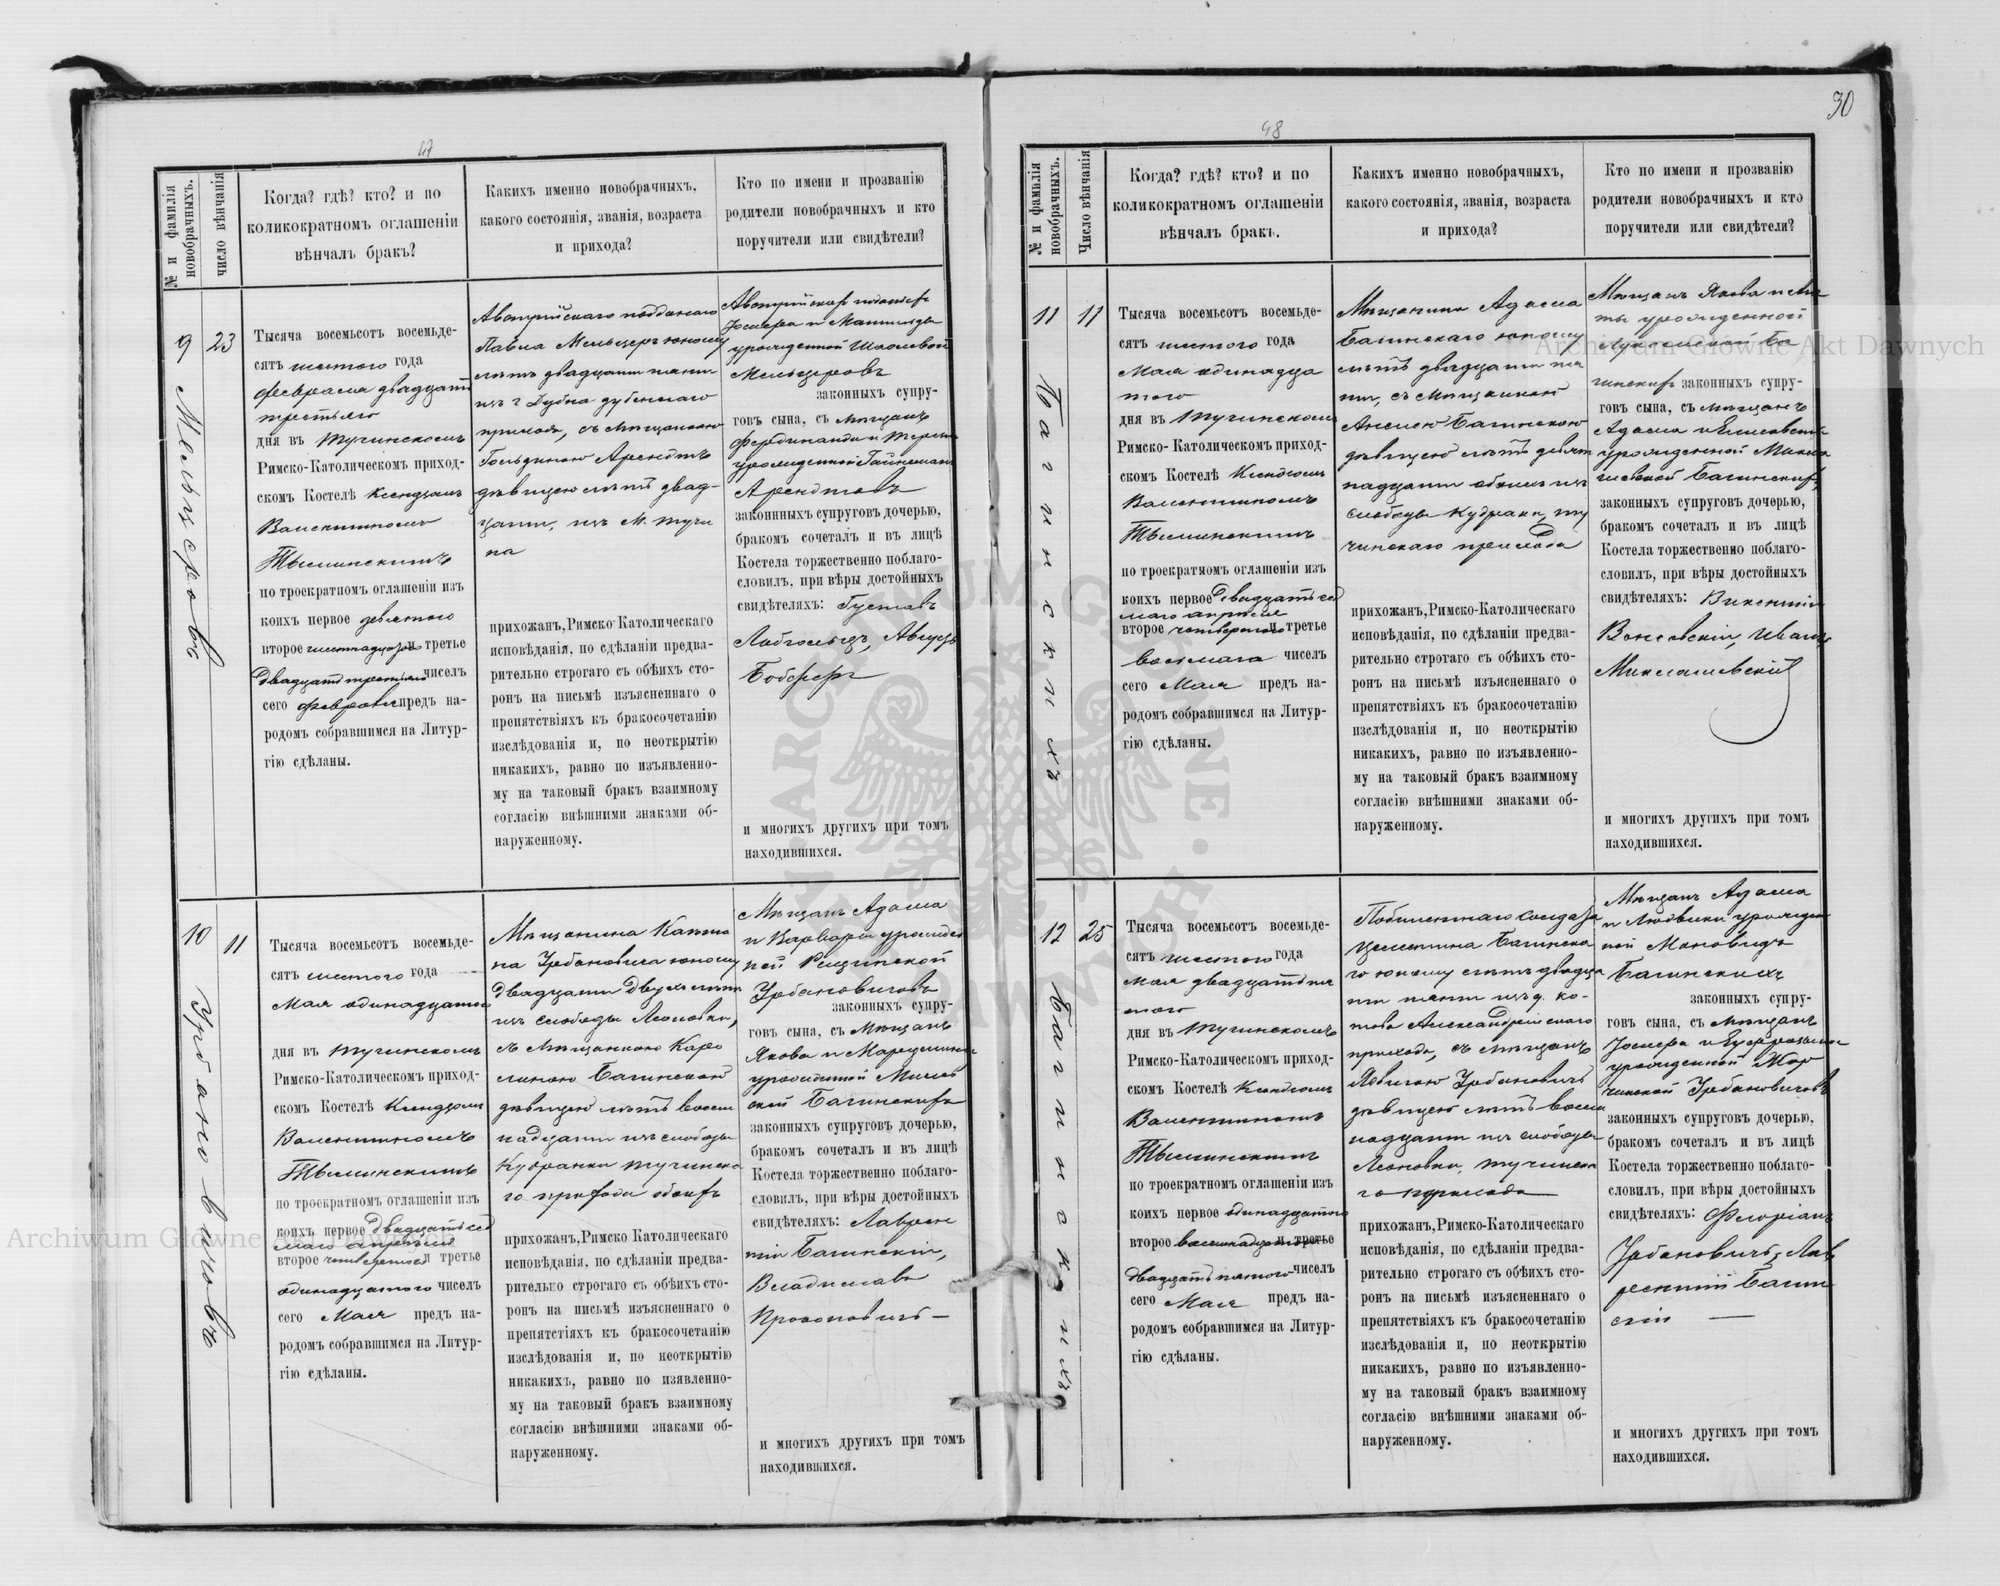 47
№ и фамилія новобрачныхъ.
число вѣнчанія
Когда? гдѣ? кто? и по
коликократномъ оглашеніи
вѣнчалъ бракъ?
Какихъ именно новобрачныхъ,
какого состоянія, званія, возраста
и прихода?
Кто по имени и прозванію
родители новобрачныхъ и кто
поручители или свидѣтели?
9
Мельцеровъ
23
Тысяча восемьсотъ восемьде-
сятъ шестого года
февраля двадцать
третьяго
дня въ Тучинскомъ
Римско-Католическомъ приход-
скомъ Костелѣ Ксендзомъ
Валентиномъ
по троекратномъ оглашеніи изъ
коихъ первое девятого
второе шестнадцатого и третье
двадцать третьяго чиселъ
сего февраля предъ на-
родомъ собравшимся на Литур-
гію сдѣланы.
Австрійскаго подданаго
Павла Мельцеръ юношу
лѣтъ двадцати пяти
изъ г Дубна дубенскаго
прихода, съ мѣщанкою
Арендтъ
дѣвицею лѣтъ двад-
цати, изъ М. Тучи
на
прихожанъ, Римско-Католическаго
исповѣданія, по сдѣланіи предва-
рительно строгаго съ обѣихъ сто-
ронъ на письмѣ изъясненнаго о
препятствіяхъ къ бракосочетанію
изслѣдованія и, по неоткрытію
никакихъ, равно по изъявленно-
му на таковый бракъ взаимному
согласію внѣшними знаками об-
наруженному.
Іосифа и Матильды
урожденной
Мельцеровъ
законныхъ супру-
говъ сына, съ мѣщанъ
Фердинанда и
урожденной
Арендтовъ
законнныхъ супруговъ дочерью,
бракомъ сочеталъ и въ лицѣ
Костела торжественно поблаго-
словилъ, при вѣры достойныхъ
свидѣтеляхъ: Густавъ
Августъ
и многихъ другихъ при томъ
находившихся.
10
Урбановичовъ
11
Тысяча восемьсотъ восемьде-
сятъ шестого года
Мая одинадцатого
дня въ Тучинскомъ
Римско-Католическомъ приход-
скомъ Костелѣ Ксендзомъ
Валентиномъ
по троекратномъ оглашеніи изъ
коихъ первое двадцать сед
маго апрѣля
второе четвертого и третье
одинадцатого чиселъ
сего Мая предъ на-
родомъ собравшимся на Литур-
гію сдѣланы.
Мѣщанина
на Урбановича юношу
двадцати двухъ лѣтъ
изъ слободы Леоновки,
съ мѣщанкою Каро
линою Багинскою
дѣвицею лѣтъ восем
надцати изъ слободы
Кудранки тучинска
го прихода обоихъ
прихожанъ, Римско Католическаго
исповѣданія, по сдѣланіи предва-
рительно строгаго съ обѣихъ сто-
ронъ на письмѣ изъясненнаго о
препятстіяхъ къ бракосочетанію
изслѣдованія и, по неоткрытію
никакихъ, равно по изявленно-
му на таковый бракъ взаимному
согласію внѣшними знаками об-
наруженному.
Мѣщанъ Адама
и Варвары урожден
ной
Урбановичовъ
законныхъ супру-
говъ сына, съ Мѣщанъ
Якова и
урожденной
Багинскихъ
законныхъ супруговъ дочерью,
бракомъ сочеталъ и въ лицѣ
Костела торжественно поблаго-
словилъ, при вѣры достойныхъ
свидѣтеляхъ: Лаврен
тій Багинскій,
Владиславъ
Прокоповичъ —
и многихъ другихъ при томъ
находившихся.
30
48
№ и фамилія новобрачныхъ.
Число вѣнчанія
Когда? гдѣ? кто? и по
коликократномъ оглашеніи
вѣнчалъ бракъ.
Какихъ именно новобрачныхъ,
какого состоянія, званія, возраста
и прихода?
Кто по имени и прозванію
родители новобрачныхъ и кто
поручители или свидѣтели?
11
Багинскихъ
11
Тысяча восемьсотъ восемьде-
сятъ шестого года
Мая одинадца
того
дня въ Тучинскомъ
Римско-Католическомъ приход-
скомъ Костелѣ Ксендзомъ
Валентиномъ
по троекратномъ оглашеніи изъ
коихъ первое двадцать сед
маго апрѣля
второе четвертого и третье
чиселъ
сего Мая предъ на-
родомъ собравшимся на Литур-
гію сдѣланы.
Мѣщанина Адама
Багинскаго юношу
лѣтъ двадцати пя
ти, съ мѣщанкою
Багинскою
дѣвицею лѣтъ девят
надцати обоихъ изъ
слободы Кудранки, ту
чинскаго прихода
прихожанъ, Римско-Католическаго
исповѣданія, по сдѣланіи предва-
рительно строгаго съ обѣихъ сто-
ронъ на письмѣ изъясненнаго о
препятствіяхъ къ бракосочетанію
изслѣдованія и, по неоткрытію
никакихъ, равно по изъявленно-
му на таковый бракъ взаимному
согласію внѣшними знаками об-
наруженному.
Мѣщанъ Якова и
урожденной
Ба
гинскихъ законныхъ супру-
говъ сына, съ мѣщанъ
Адама и
урожденной
Багинскихъ,
законныхъ супруговъ дочерью,
бракомъ сочеталъ и въ лицѣ
Костела торжественно поблаго-
словилъ, при вѣры достойныхъ
свидѣтеляхъ: Викентій
Иванъ
и многихъ другихъ при томъ
находившихся.
12
Багинскихъ
25
Тысяча восемьсотъ восемьде-
сятъ шестого года
мая двадцать пя
того
дня въ Тучинскомъ
Римско-Католическомъ приход-
скомъ Костелѣ Ксендзомъ
Валентиномъ
по троекратномъ оглашеніи изъ
коихъ первое одинадцатого
второе восемнадцатого и третье
двадцать пятого чиселъ
сего Мая предъ на-
родомъ собравшимся на Литур-
гію сдѣланы.
солдата
Целестина Багинска
го юношу лѣтъ двадца
ти пяти изъ д.
Александрійскаго
прихода, съ мѣщан
Урбановичъ
дѣвицею лѣтъ восем
надцати изъ слободы
Леоновки, тучинска
го прихода
прихожанъ, Римско-Католическаго
исповѣданія, по сдѣланіи предва-
рительно строгаго съ обѣихъ сто-
ронъ на письмѣ изъясненнаго о
препятствіяхъ къ бракосочетанію
изслѣдованія и, по неоткрытію
никакихъ, равно по изъявленно-
му на таковый бракъ взаимному
согласію внѣшними знаками об-
наруженному.
Мѣщанъ Адама
и Людвики урожден
ной
Багинскихъ
законныхъ супру-
говъ сына, съ мѣщанъ
Іосифа и
урожденной
Урбановичовъ
законныхъ супруговъ дочерью,
бракомъ сочеталъ и въ лицѣ
Костела торжественно поблаго-
словилъ, при вѣры достойныхъ
свидѣтеляхъ: Флоріанъ
Урбановичъ, Лав
рентій Багин
скій —
и многихъ другихъ при томъ
находившихся.
Archiwum Główne Akt Dawnych
Archiwum Główne Akt Dawnych
ARCHIWUM GŁÓWNE AKT DAWNYCH